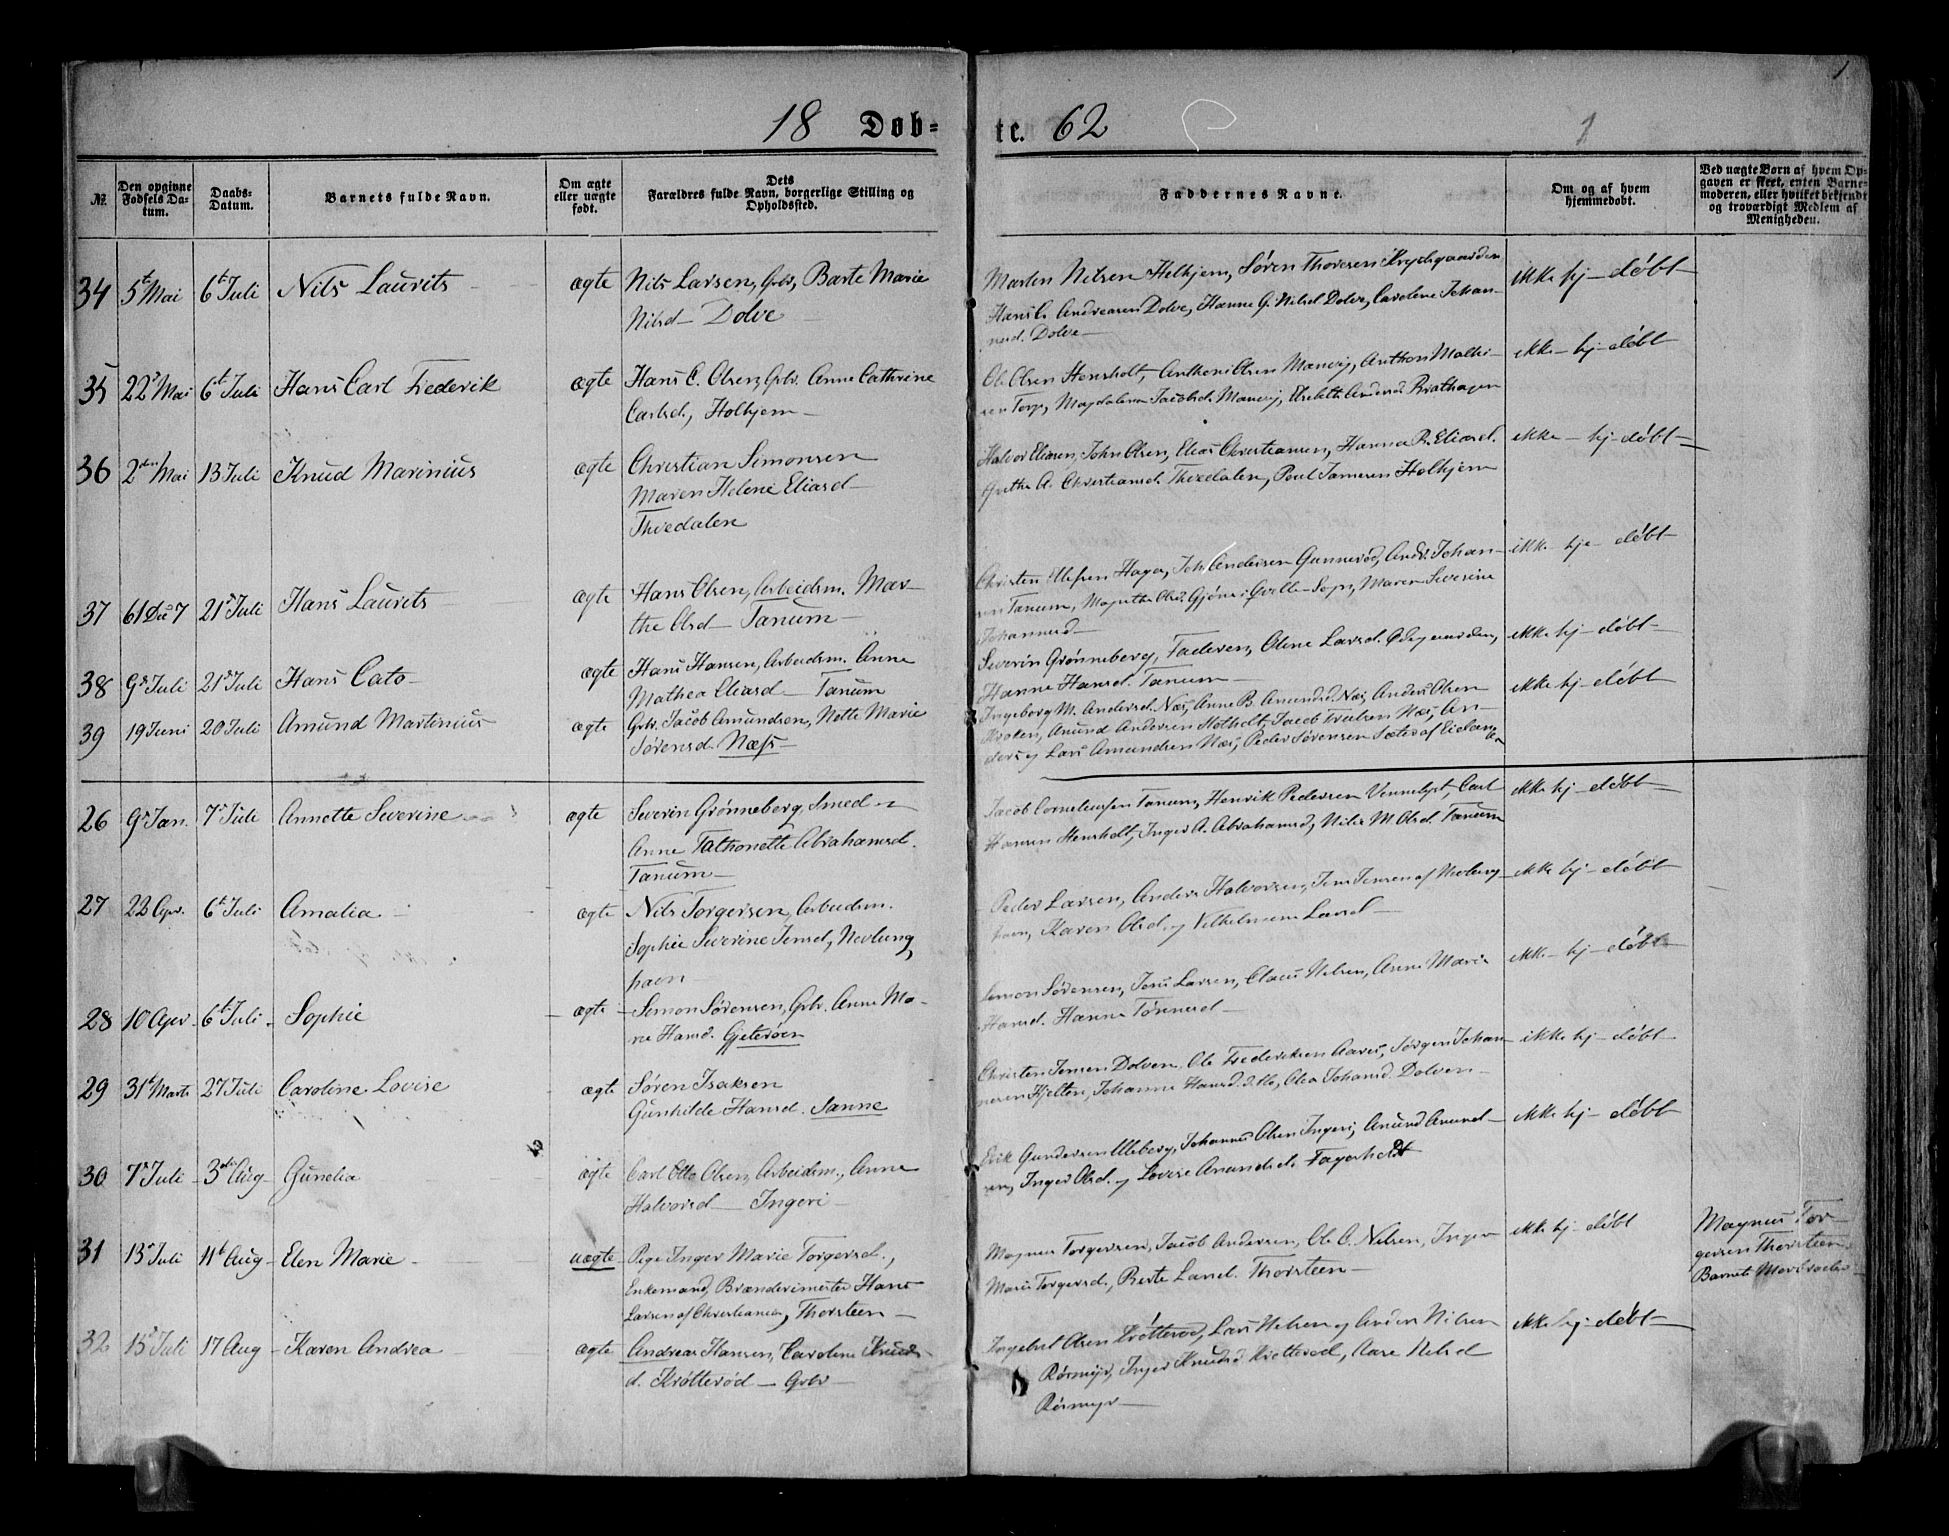 18 Døb=
te. 62
1
1
№
Den opgivne Fødsels Datum.
Daabs-Datum.
Barnets fulde Navn.
Om ægte eller uægte født.
Dets Forældres fulde Navn, borgerlige Stilling og Opholdssted.
Faddernes Navne.
Om og af hvem hjemmedøbt.
Ved uægte Børn af hvem Opgaven er skeet, enten Barnemoderen, eller hvilket bekjendt og troværdigt Medlem af Menigheden.
34 5t Mai 6t Juli Nils Laurits ægte Nils Larsen, Grbr, Barte Marie
Nilsd – Dolve
Marten Nilsen Helhjem, Søren Thoresen
Hans C. Andreasen Dolve, Hanne G. Nilsd Dolve, Caroline Johan-
nesd. Dolve
ikke hj – døbt
35 22d Mai 6t Juli Hans Carl Frederik ægte Hans C. Olsen, Grbr. Anne Cathrine
Carlsd, Holhjem
Ole Olsen Hemsholt, Anthoni Olsen Manvig, Anthon Mathi-
sen Torp, Magdalena Jacobsd. Manvig, Elisabeth Andersd Brathagen
ikke – hj – døbt
36 2den Mai 13 Juli Knud Marinius ægte Christian Simonsen
Maren Helene Eliasd
Thvedalen
Halvor Eliasen, John Olsen, Elias Christiansen, Hanna R. Eliasd.
Grethe A. Christiansd. Thvedalen, Poul Jansen Holhjem
ikke – hj – døbt
37 61 De 7 21d Juli Hans Laurits ægte Hans Olsen, Arbeidsm. Mar-
the Olsd – Tanum
Christen Haga, Andersen Gunnerød, Andr. Johan-
sen Tanum, Magrethe Olsd. Gjøne i Qvelle-Sogn, Maren Severine
Johannesd
ikke hje – døbt
38 9d Juli 21d Juli Hans Cato ægte Hans Hansen, Arbeidsm. Anne
Mathea Eliasd – Tanum
Severin Grønneberg, Faderen, Oline Larsd. Ødegaarden,
Hanne Hansd. Tanum
ikke hj – døbt
39 19 Juni 20 Juli Amund Martinius ægte Grbr. Jacob Amundsen, Nette Marie
Sørensd. Næss
Ingeborg M. Andersd. Næs, Anne B. Amundsd. Næs, Anders Olsen
Kroken, Amund Andersen Hotholt, Jacob Næs, An-
ders og Lars Amundsen Næs, Peder Sørensen Sæter af Eidanger
ikke hj – døbt
26 9d Jan. 7d Juli Annette Severine ægte Severin Grønneberg, Smed
Anne Tathonette Abrahamsd.
Tanum
Jacob Corneliussen Tanum, Henrik Pedersen Carl
Hansen Hemsholt, Inger A. Abrahamsd, M. Olsd. Tanum
ikke hj – døbt
27 22 Apr. 6t Juli Amalia ægte Nils Torgersen, Arbeidsm.
Sophie Severine Jensd, Nevlung
havn
Peder Larsen, Anders Halvorsen, Jens Jensen af Nevlung
havn, Karen Olsd. og Vilhelmine Larsd
ikke hj – døbt
28 10 Apr. 6t Juli Sophie ægte Simon Sørensen, Grbr. Anne Ma-
rie Hansd. Gjeterøen
Simon Sørensen, Jens Larsen, Claus Nilsen, Anne Marie
Hansd. Hanne Tønnesd
ikke – hj – døbt
29 31t Marts 27 Juli Caroline Lovise ægte Søren Isaksen
Gunhilde Hansd. Sanne
Christen Jensen Dolven, Ole Frederiksen Aarus, Jørgen Johan-
nesen Hjelten, Johanne Hansd. Olea Johansd. Dolven
ikke hj – døbt
30 7d Juli 3die Aug Gunelia ægte Carl Otto Olsen, Arbeidsm., Anne
Halvorsd – Ingeri
Erik Gundersen Ulleberg, Johannes Olsen Ingeri, Amund Amund-
sen, Inger Olsd. og Lovise Amundsd. Fagerholt
ikke hj – døbt
31 13d Juli 11t Aug Elen Marie uægte Pige Inger Marie Torgersd.,
Enkemand, Brænderimester Hans
Larsen af Christiania, Thorsteen
Magnus Torgersen, Jacob Andersen, Ole C. Nilsen, Inger
Marie Torgersd, Berte Larsd. Thorsteen
ikke hj – døbt
Magnus Tor-
gersen Thorsteen
Barnets Morbroder
32 15d Juli 17 Aug Karen Andrea ægte Andreas Hansen, Caroline Knuds-
d. Krøtterød – Grbr
Ingebret Olsen Krøtterød, Lars Nilsen og Anders Nilsen
Rørmyr, Inger Knudsd Krøtterød, Aase Nilsd
Rørmyr
ikke hj – døbt